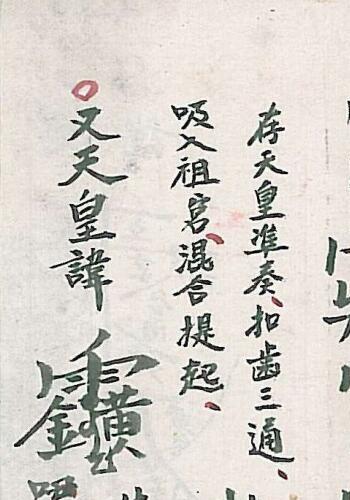 存天皇准奏、扣齒三通、
吸入祖宮、混合提起、
○又天皇諱